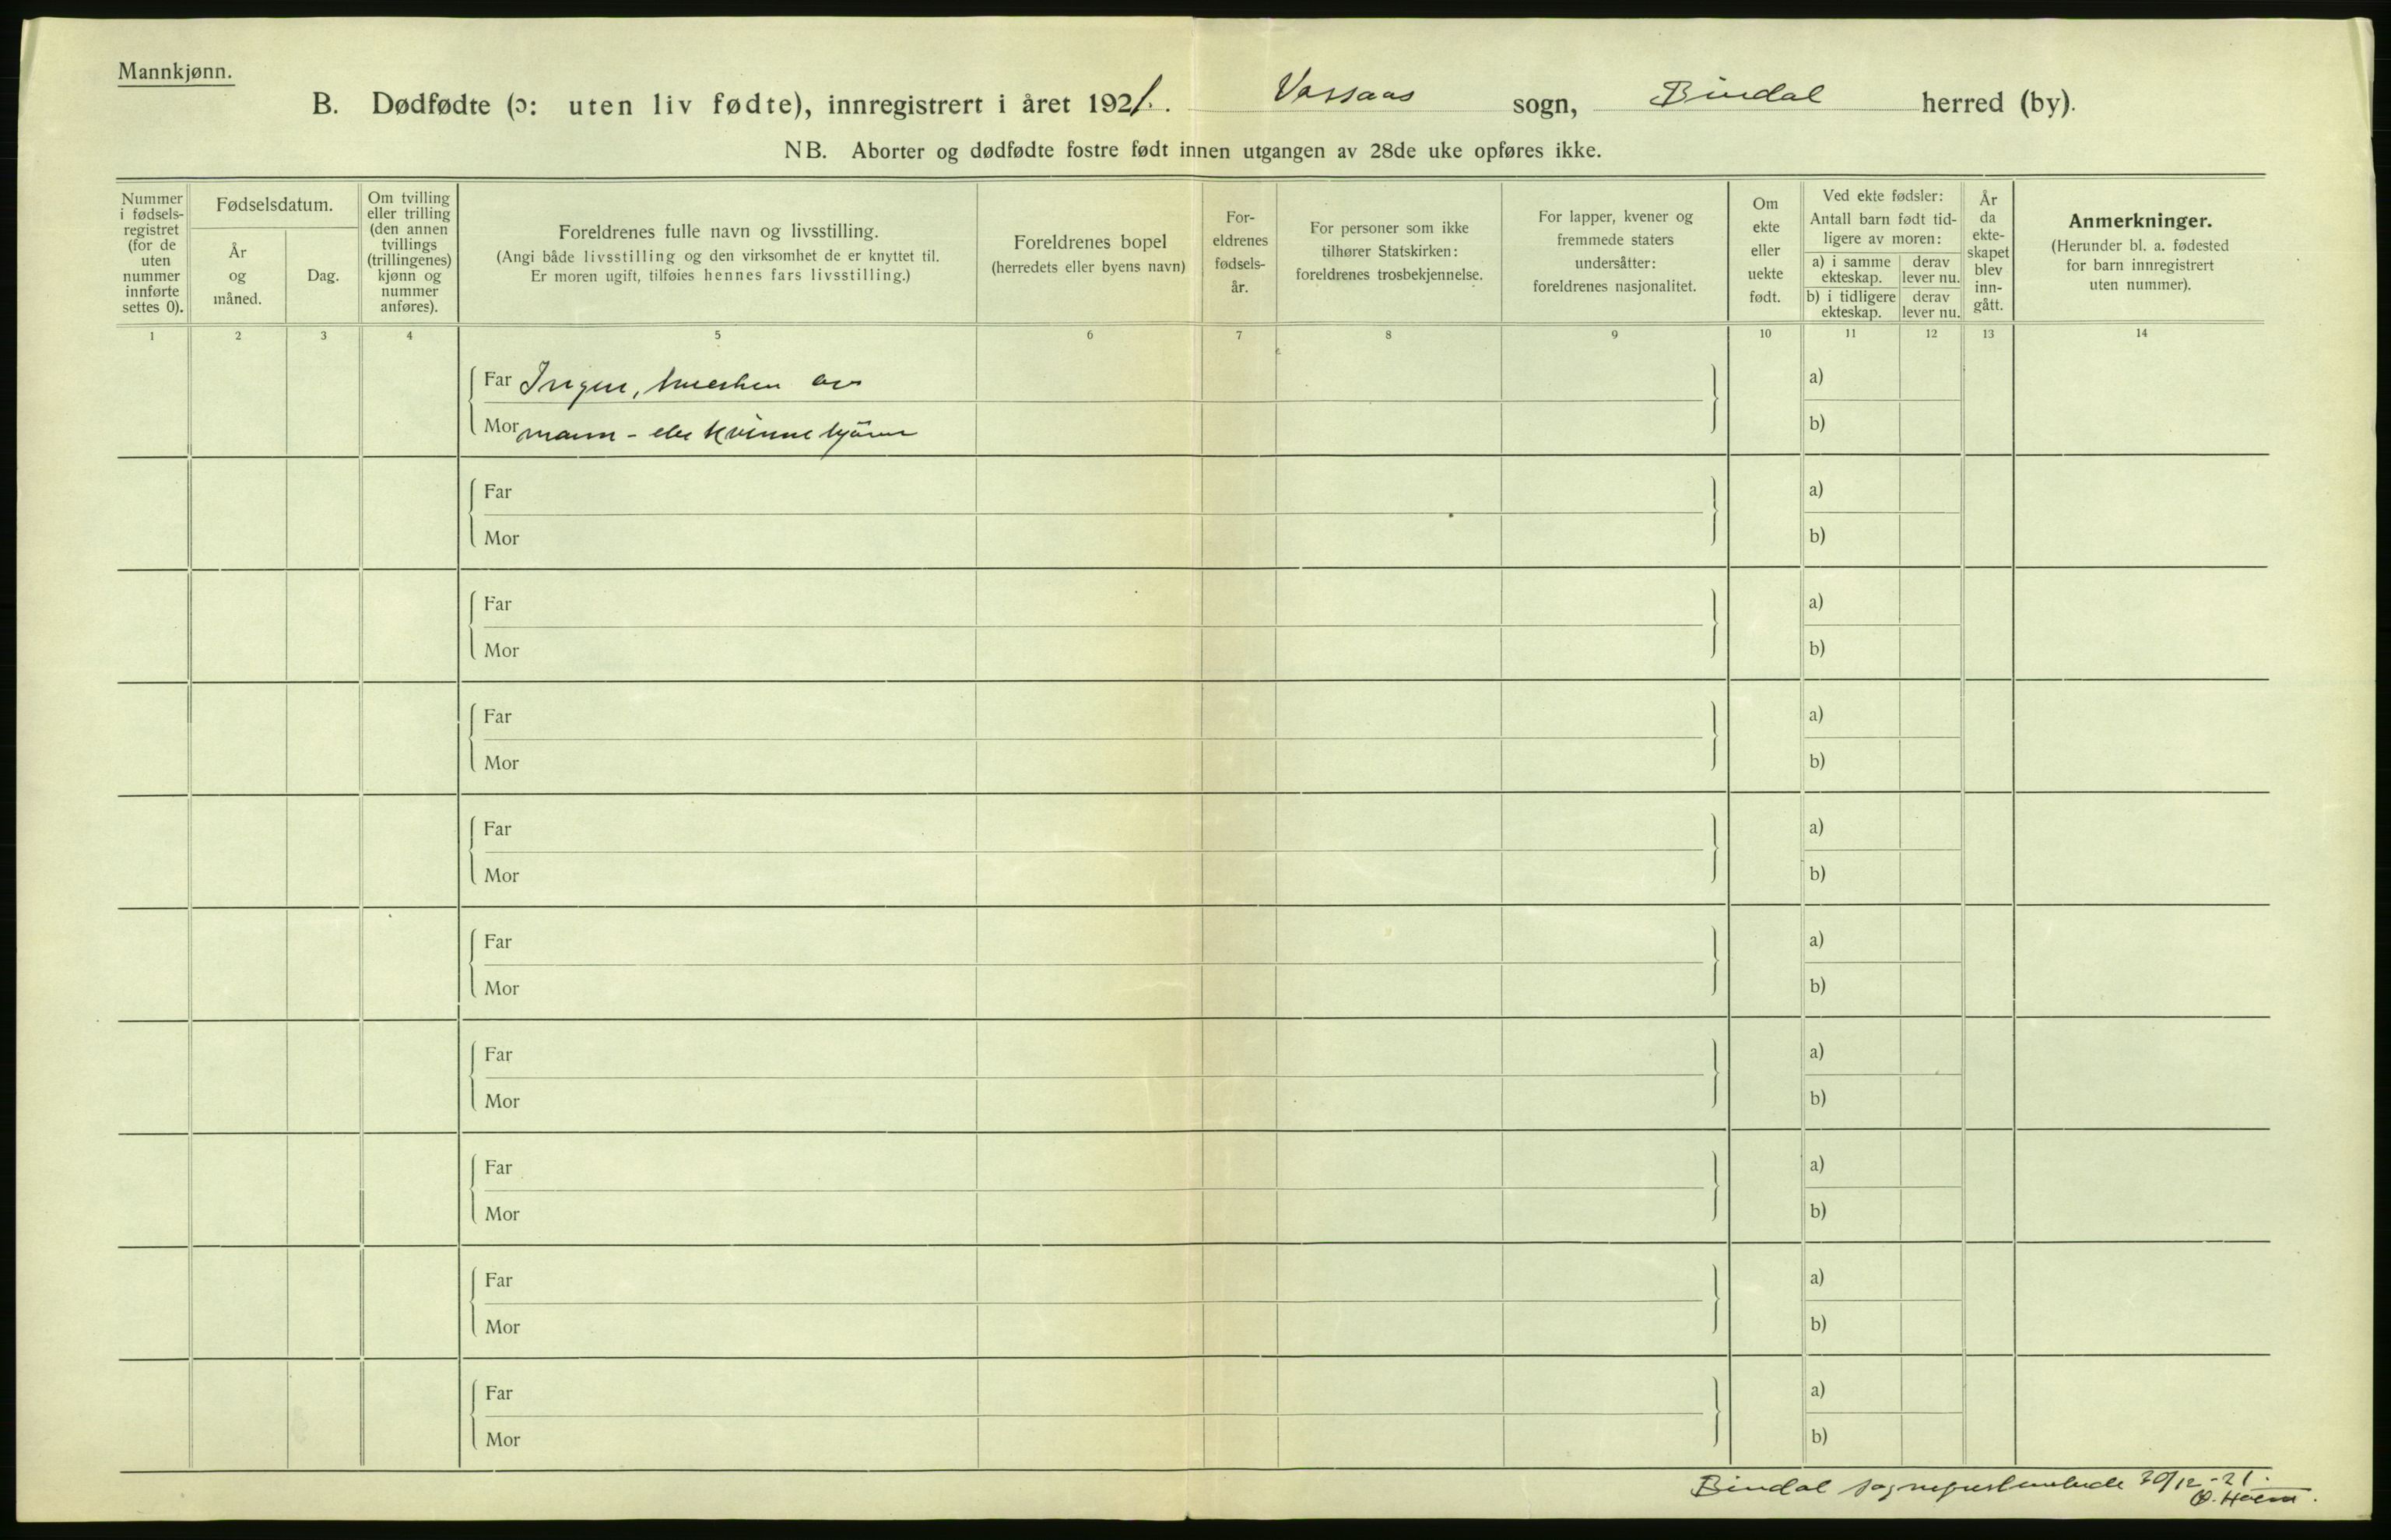 Mannkjønn.
B. Dødfødte (ɔ: uten liv fødte), innregistrert i året 1921. Vassaas sogn, Bindal herred (by).
NB. Aborter og dødfødte fostre født innen utgangen av 28de uke opføres ikke.
Nummer
i fødsels-
registret
(for de
uten
nummer
innførte
settes 0).
Fødselsdatum.
År
og
måned.
Dag.
Om tvilling
eller trilling
(den annen
tvillings
(trillingenes)
kjønn og
nummer
anføres).
Foreldrenes fulle navn og livsstilling.
(Angi både livsstilling og den virksomhet de er knyttet til.
Er moren ugift, tilføies hennes fars livsstilling.)
Foreldrenes bopel
(herredets eller byens navn)
For-
eldrenes
fødsels-
år.
For personer som ikke
tilhører Statskirken:
foreldrenes trosbekjennelse.
For lapper, kvener og
fremmede staters
undersåtter:
foreldrenes nasjonalitet.
Om
ekte
eller
uekte
født.
Ved ekte fødsler:
Antall barn født tid-
ligere av moren:
a) i samme
ekteskap.
derav
lever nu.
b) i tidligere
ekteskap.
derav
lever nu.
År
da
ekte-
skapet
blev
inn-
gått.
Anmerkninger.
(Herunder bl. a. fødested
for barn innregistrert
uten nummer).
1 2 3 4 5 6 7 8 9 10 11 12 13 14
Far Ingen, hverken av a)
Mor mann- eller kvinnekjönn b)
Far a)
Mor b)
Far a)
Mor b)
Far a)
Mor b)
Far a)
Mor b)
Far a)
Mor b)
Far a)
Mor b)
Far a)
Mor b)
Far a)
Mor b)
Far a)
Mor b)
Bindal sogneprestembede 30/12-21.
O. Holm.